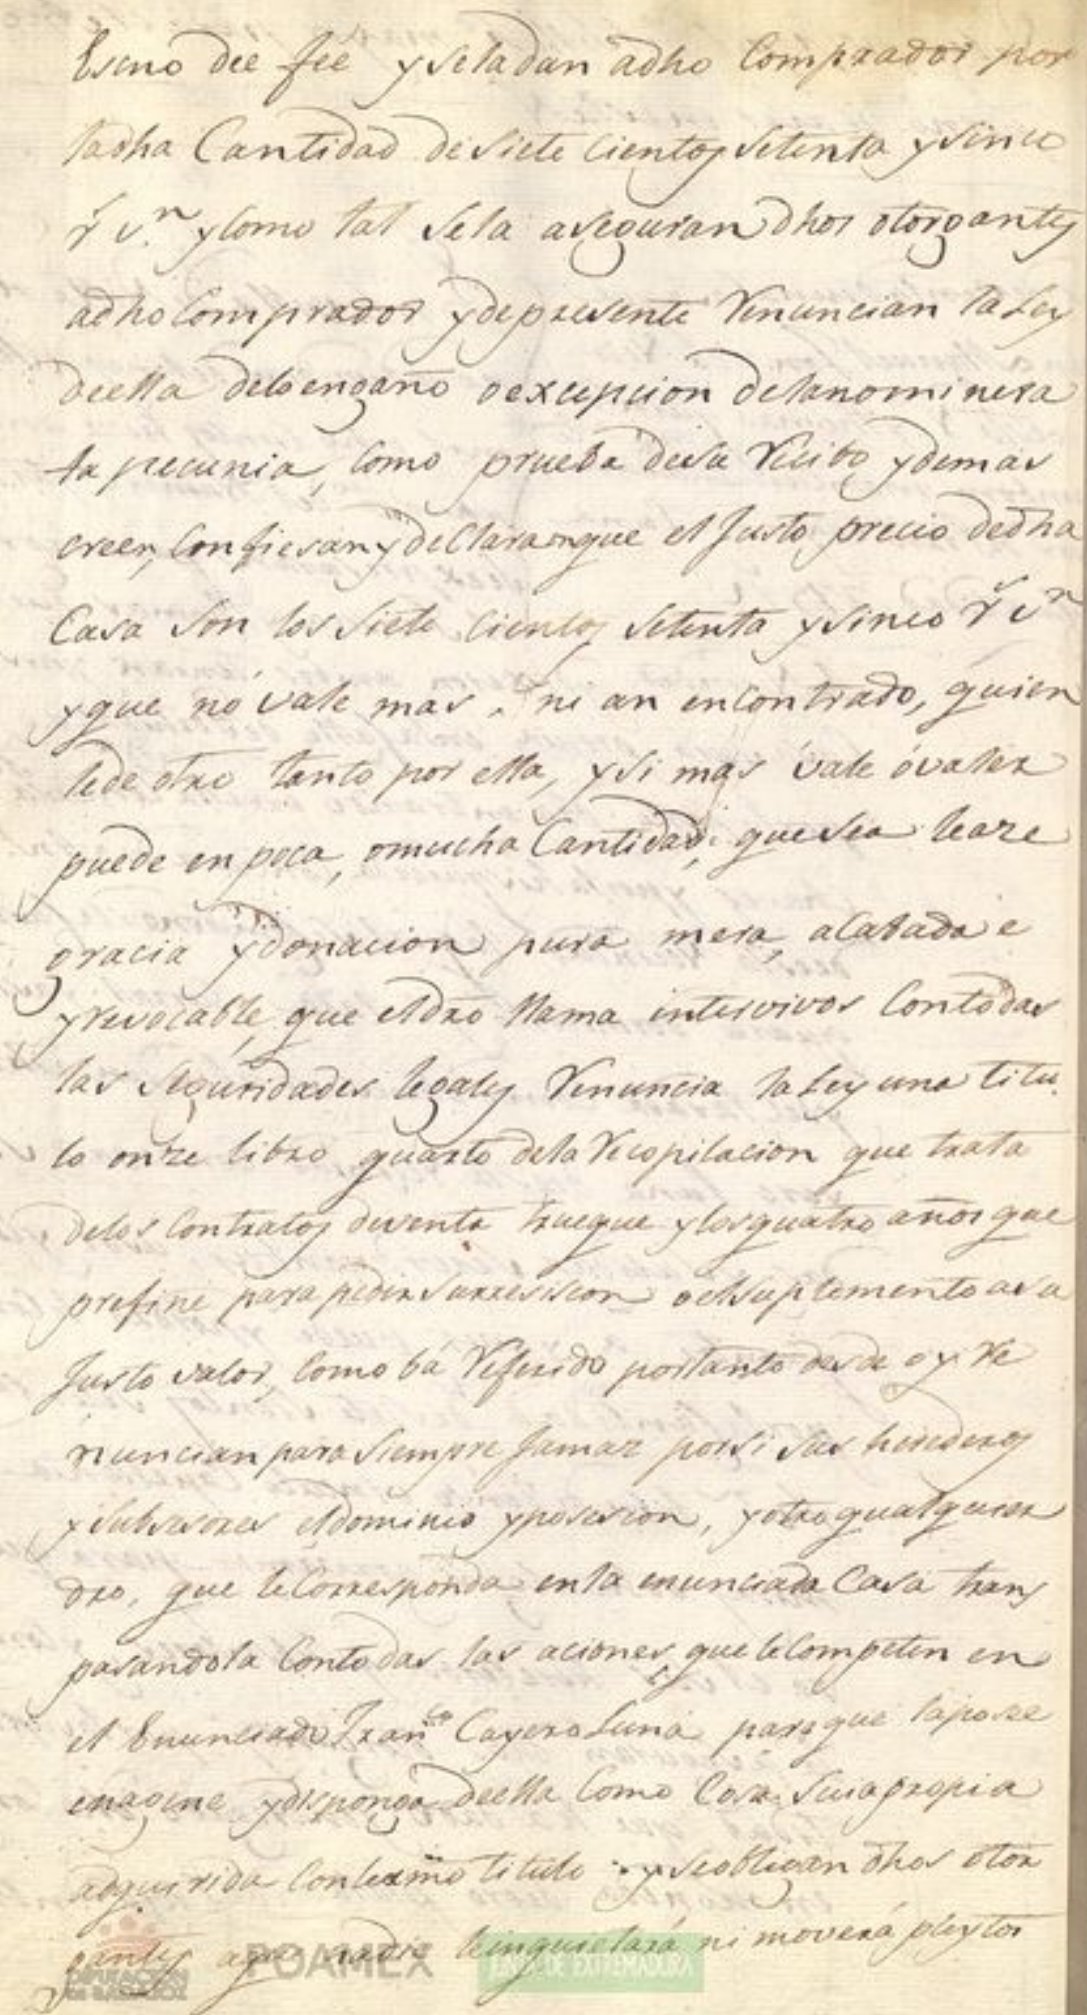 Escno dee fee y seladan adho Comprador por
ladha Cantidad de siete cientos setenta y sinco
r^s v.^n y como tal sela aseguran dhos otorgantes
adho Comprador y depresente Renuncian la Ley
deella delos engaño o excepcion delanominera
ta pecunia, como prueba desu Recibo y demas
creen, Confiesan y deClaran que el Justo precio dedha
Casa son los siete cientos setenta y sinco r^s v^n
y que nó vale mas, ni an encontrado, quien
lede otro tanto por ella, y si mas vale óvaler
puede en poca, omucha Cantidad, que sea leaze
gracia y donacion pura mera, acabada e
yrevocable, que eldro llama intervivos Contodas
las seguridades legales Renuncia la Ley una titu
lo onze libro quarto dela Recopilacion que trata
delos Contratos deventa trueque y los quatro años que
prefine para pedir surresision o elsuplemento asu
Justo valor, como bá Referido portanto desde oy Re
nuncian para siempre Jamaz porsi sus herederos
y subsesores eldominio y posesion, y otro qualquier
dro, que leCorresponda enla enunciada Casa trans
pasandola Contodas las aciones, que leCompeten en
el Enunciado Fran^co Cayero Luna para que lapose
enagene y disponga deella Como Cosa suia propia
adquirida Conlexmo titulo y seobligan dhos otor
gantes a que nadie leinquietará ni moverá pleytos
DIPUTACIÓN
DE BADAJOZ
POAMEX
JUNTA DE EXTREMADURA